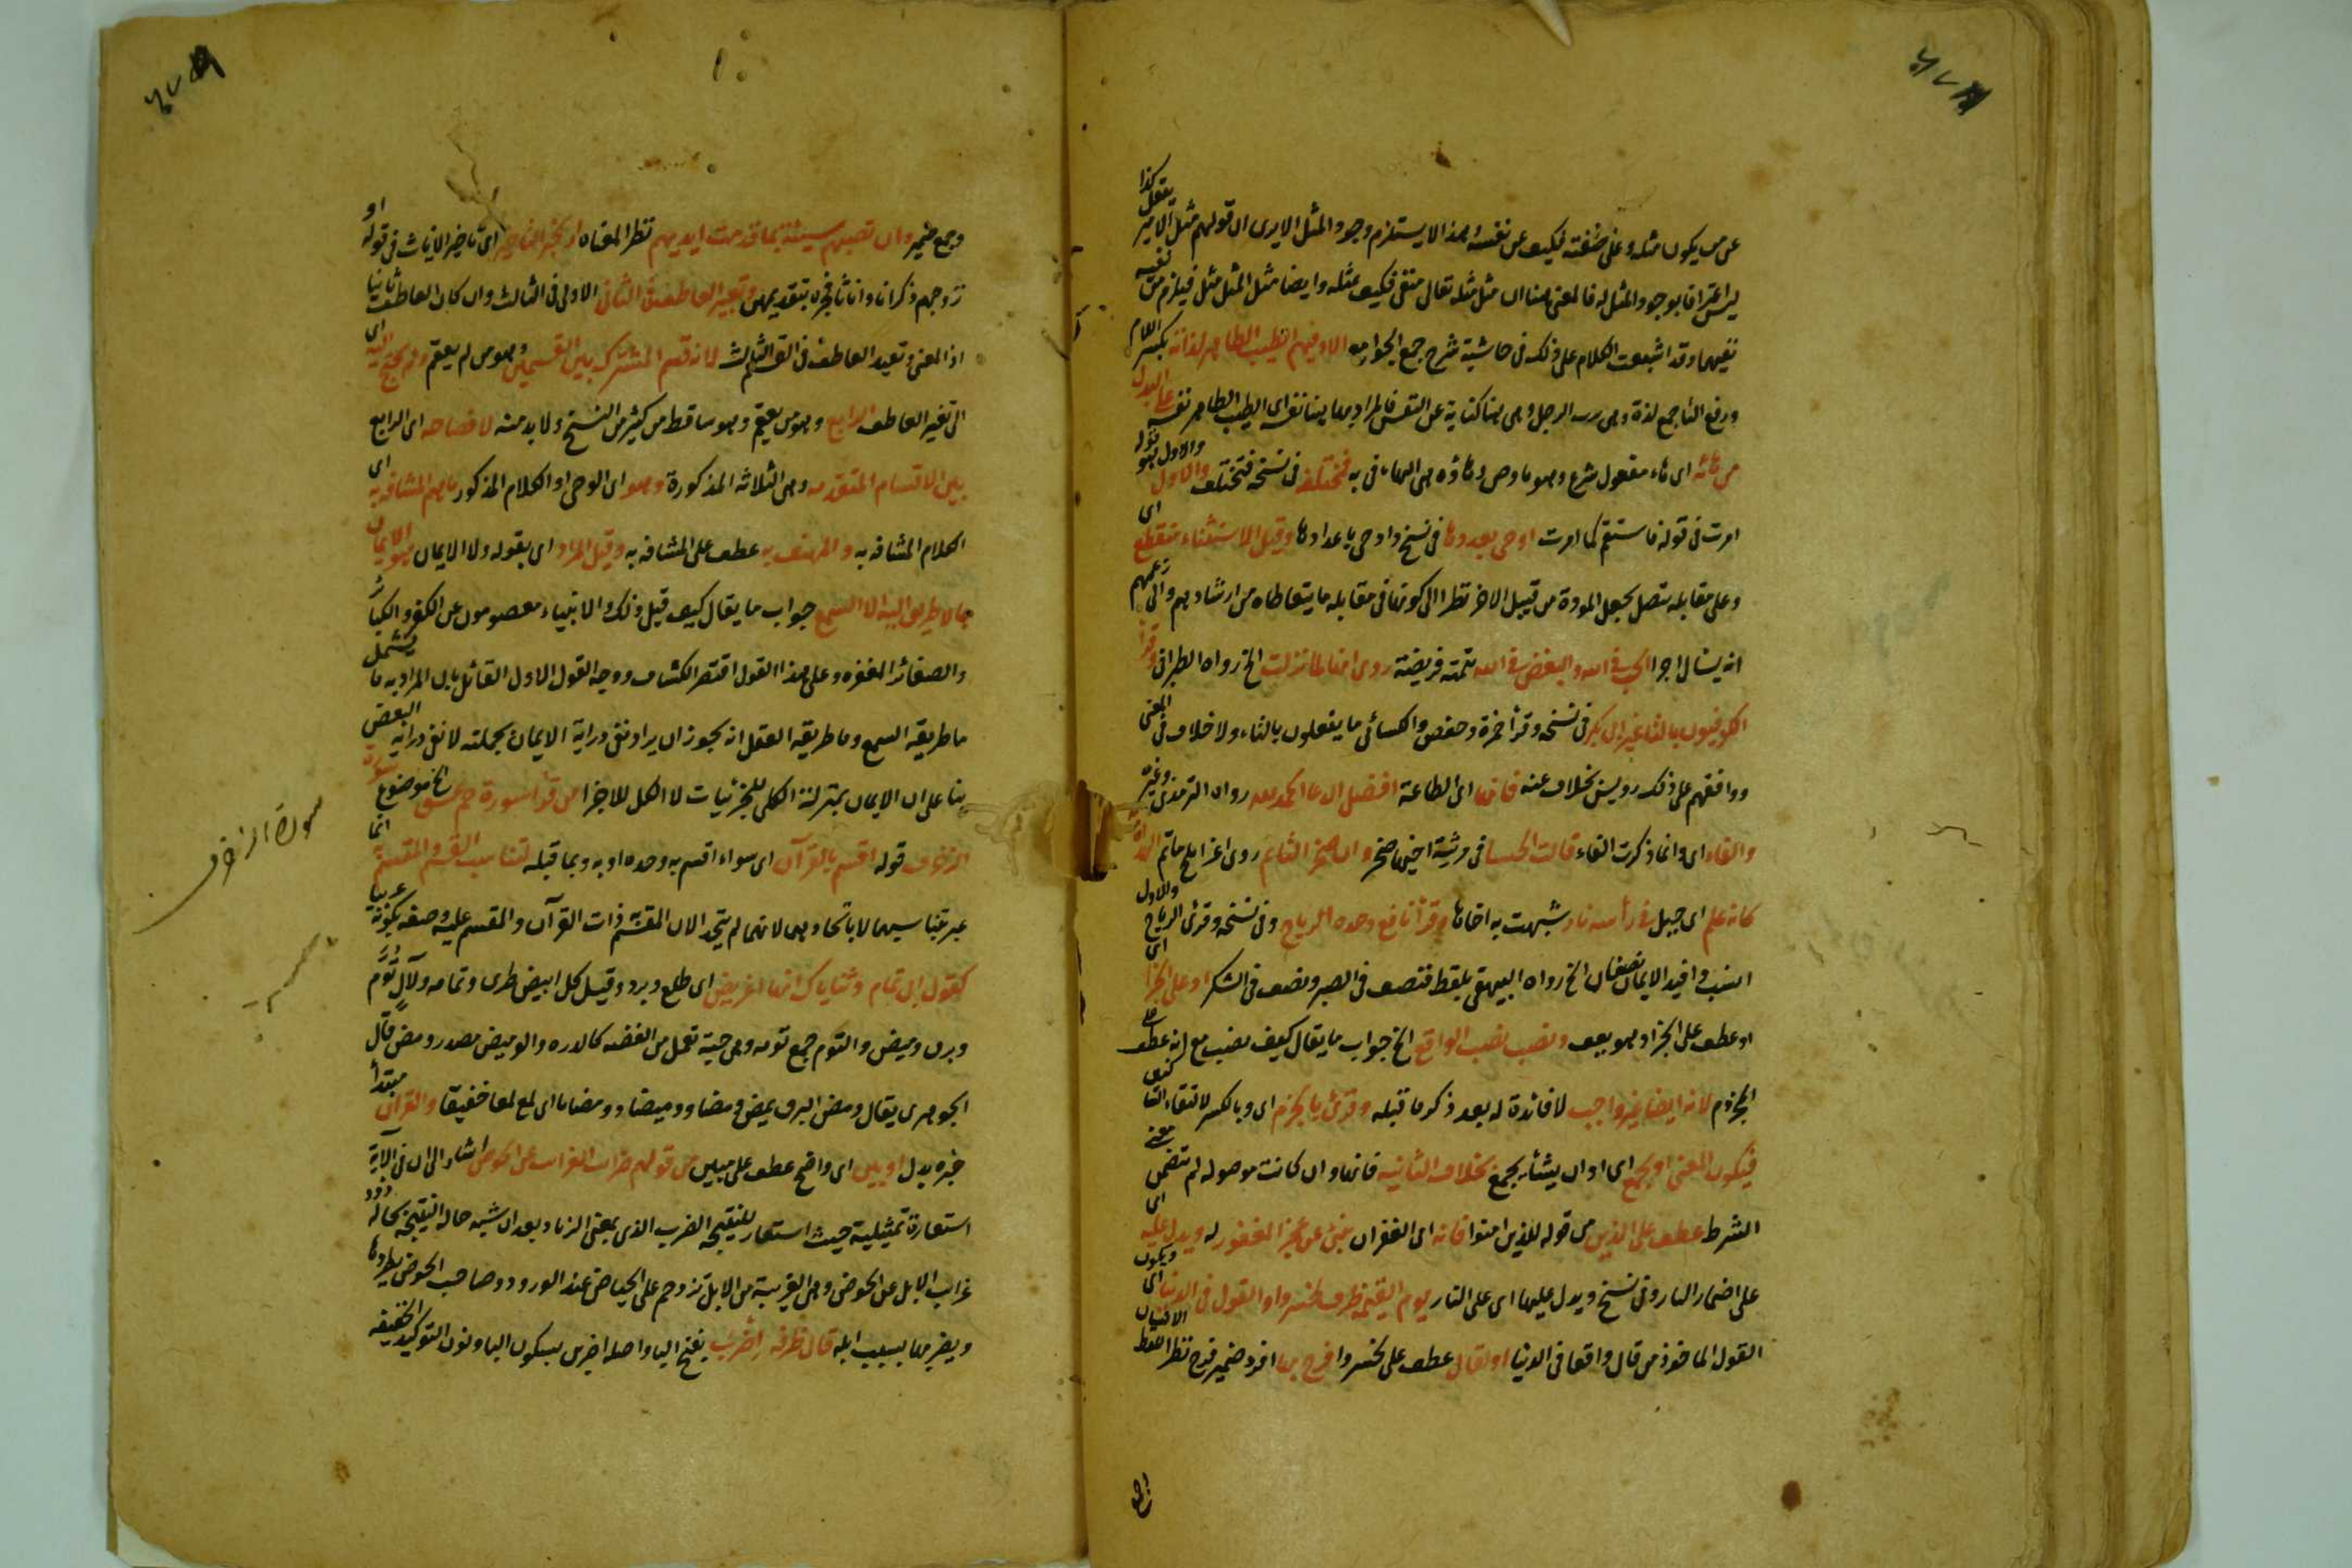 عن من يكون مثله وعلى صفته فكيف عن نفسه وهذا لا يستلزم وجود المثل الا يرى ان قولهم مثل الامير يفعل كذا
ليس اعترافا بوجود المثل له فالمعنى هنا ان مثل مثله تعالى منفي فكيف بمثله وايضا مثل المثل مثل فيلزم من نفيه
نفيهما وقد اشبعت الكلام على ذلك في حاشية شرح جمع الجوامع الا وفيهم الطيب الطاهر لذاته بكسر اللام
ورفع التا جمع لذة وهي ترب الرجل وهي هنا كناية عن النفس فالمراد بها هنا نفسه اى الطيب الطاهر نفسه على البدل
من هائه اى هاء مفعول شرع وهو ما وصى وهاؤه هي الهاء في به فمختلف في نسخة فتختلف والاول
امرت في قوله فاستقم كما امرت اوحى بعدوها في نسخ واوحى باعدادها وقيل الاستثناء منقطع اى
وعلى مقابله متصل بجعل المودة من قبيل الاجر نظرا الى كونها في مقابله ما يتعاطاه من ارشادهم والى زعمهم
انه يسال اجرا الحب في الله والبغض في الله تتمته فريضة روى انها لما نزلت الخ رواه الطبراني وقرأ
الكوفيون بالتا غير ابي بكر في نسخه وقرأ حمزة وحفص والكسائي ما يفعلون بالتاء ولا خلاف في المعنى
ووافقهم على ذلك رويس بخلاف عنه فانها اى الطاعة افضل الدعا الحمد لله رواه الترمذي وغيره
والفاء اى وانما ذكرت الفاء قالت الخنسا في مرثية اخيها صخر وان صخرا لتأتم روى اغر ابلج تأتم الهداة
كانه علم اى جبل في رأسه نار شبهت به اخاها وقرأ نافع وحده الرياح وفي نسخه وقرئ الرياح والاول
انسب وافيد الايمان نصفان الخ رواه البيهقي بلفظ فنصف في الصبر ونصف في الشكر او على الجزا اى
او عطف على الجزا وهو يعف ونصب نصب الواقع الخ جواب ما يقال كيف نصب مع انه عطف على
المجزوم لانه ايضا غير واجب لا فائدة له بعد ذكر ما قبله وقرئ بالجزم اى وبالكسر لالتقاء التقا
فيكون المعنى او يجمع اى او ان يشأ يجمع بخلاف الثانيه فانها وان كانت موصوله لم تتضمن معنى
الشرط عطف على الذين من قوله للذين امنوا فانه اى الغفران ينبئ عن عجز المغفور له ويدل عليه اى
على اضمار النار وفي نسخ ويدل عليها اى على النار يوم القيمة ظرف لخسروا او القول في الدنيا اى ويكون
القول الماخوذ من قال واقعا في الدنيا او لقال عطف على لخسروا فرح بها افرد ضمير فرح نظرا للفظ الانسان
وجمع ضمير وان تصبهم سيئة بما قدمت ايديهم نظرا لمعناه او لجبر التاخير اى تاخير الاناث في قوله او
يزوجهم ذكرانا واناثا فجره بتقديمهن وتغيير العاطف في الثاني الاولى في الثالث وان كان العاطف ثانيا
اذ المعنى وتغيير العاطف في القسم الثالث لانه قسم المشترك بين القسمين وهو من لم يعقم ولم يحتج اليه اى
الى تغير العاطف الرابع وهو من يعقم وهو ساقط من كثير من النسخ ولا بد منه لافصاحه اى الرابع
بين الاقسام المتقدمه وهي الثلاثه المذكورة وهو اى الوحى او الكلام المذكور ما يعم المشافه به اى
الكلام المشافه به والمهتف به عطف على المشافه به وقيل المراد اى بقوله ولا الايمان هو الايمان
بما لا طريق اليه الا السمع جواب ما يقال كيف قيل ذلك والانبياء معصومون عن الكفر والكبائر
والصغائر المنفره وعلى هذا القول اقتصر الكشاف ووجه القول الاول القائل بان المراد به ما يشمل
ما طريقه السمع وما طريقه العقل انه يجوز ان يراد نفي دراية الايمان بجملته لا نفي دراية البعض
بنا على ان الايمان بمنزلة الكلي للجزئيات لا الكل للاجزا من قرأ سورة حم عسق الخ موضوع سورة
الزخرف قوله اقسم بالقرآن اى سواء اقسم به وحده او به وبما قبله لتناسب القسم والمقسم انما
عبر بتناسبهما لا باتحادهما لانهما لم يتحدا لان المقسم ذات القرآن والمقسم عليه وصفه بكونه عربيا
كقول ابي تمام وثناياك انها اغريض اى طلع وبرد وقيل كل ابيض طرى وتمامه ولآلٍ تُوَّم
وبرق وميض والتوم جمع تومه وهي حبة تعمل من الفضه كالدره والوميض مصدر ومض قال
الجوهري يقال ومض البرق يمض ومضا ووميضا وومضانا اى لمع لمعا خفيفا والقرآن مبتدأ
خبره يدل او بين اى واضح عطف على مبين من قولهم ضرب الغرائب عن الحوض اشار الى ان في الآية
استعارة تمثيلية حيث استعار للتنقيح الضرب الذي بمعنى الزناد بعد ان شبه حاله التقيحه بحاله ذود
غرايب الابل عن الحوض وهي الغريبة من الابل تزدحم على الحياض عند الورود وصاحب الحوض يطردها
ويضربها بسبب ابله قال طرفه اضرب بفتح البا واصله اضربن بسكون البا ونون التوكيد الخفيفه
سورة الزخرف